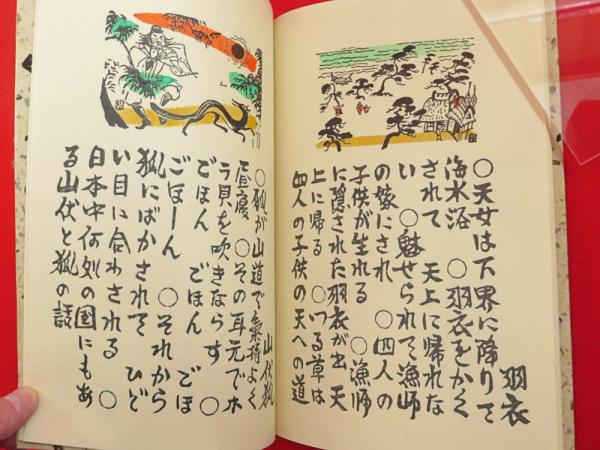 羽衣
○天女は下界に降りて
海水浴 ○羽衣をかく
されて 天上に帰れな
い ○魅せられて漁師
の嫁にされ ○四人の
子供が生れる ○漁師
に隠された羽衣が出 天
上に帰る ○つる草は
四人の子供の天への道
山伏狐
○狐が山道で氣持よく
昼寝 ○その耳元でホ
ラ貝を吹きならす ○
ごほん ごほん ごほ
ごほーん ○それから
狐にばかされて ひど
い目に合わされる ○
日本中何処の国にもあ
る山伏と狐の話